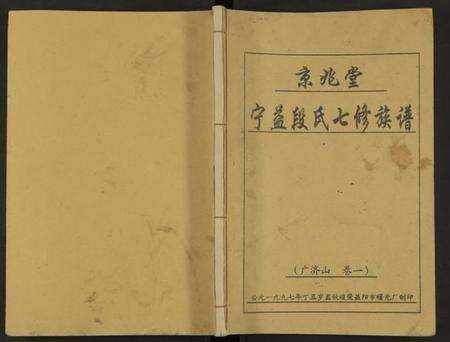 京兆堂
宁益段氏七修族谱
（广济山 卷一）
公元一九九七年丁丑岁孟秋竣梁益阳市曙光厂制印